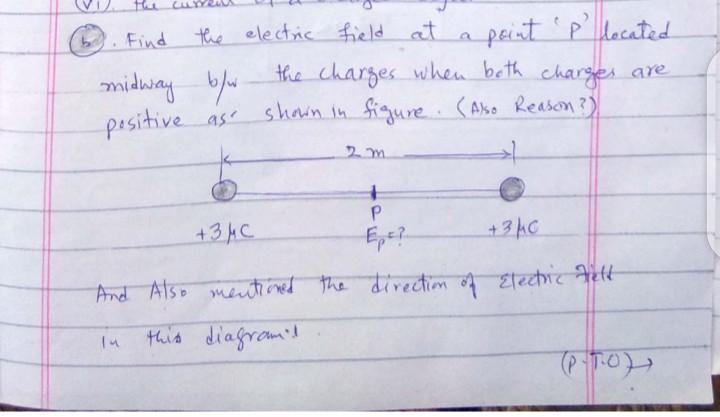 (vi). the current
(b). Find the electric field at a point 'P' located
midway b/w the charges when both charges are
positive as shown in figure. (Also Reason?)
2 m
P
+3 μC Ep=? +3 μC
And Also mentioned the direction of Electric Field
in this diagram
(P.T.O)→